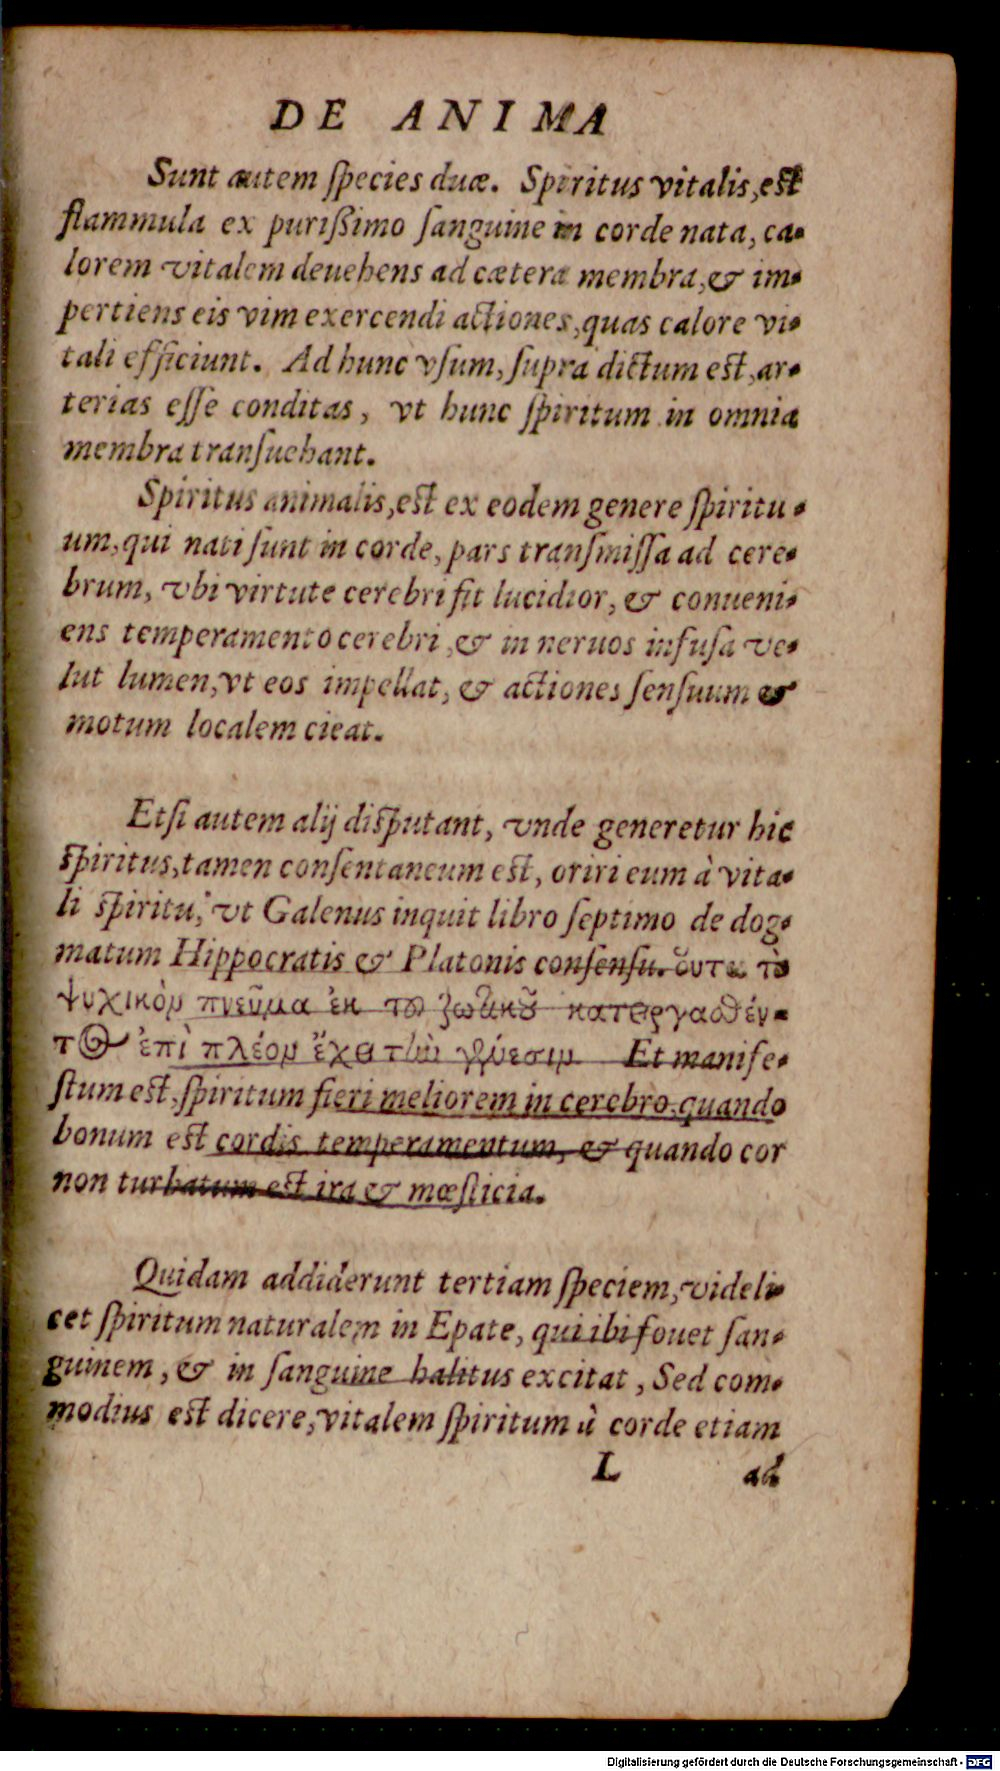 DE ANIMA
Sunt autem species duæ. Spiritus vitalis, est
flammula ex purißimo sanguine in corde nata, ca-
lorem vitalem deuehens ad cætera membra, & im-
pertiens eis vim exercendi actiones, quas calore vi-
tali efficiunt. Ad hunc vsum, supra dictum est, ar-
terias esse conditas, vt hunc spiritum in omnia
membra transuehant.
Spiritus animalis, est ex eodem genere spiritu-
um, qui nati sunt in corde, pars transmissa ad cere-
brum, vbi virtute cerebri fit lucidior, & conueni-
ens temperamento cerebri, & in neruos infusa ve-
lut lumen, vt eos impellat, & actiones sensuum &
motum localem cieat.
Etsi autem alij disputant, vnde generetur hic
spiritus, tamen consentaneum est, oriri eum à vita-
li spiritu, vt Galenus inquit libro septimo de dog-
matum Hippocratis & Platonis consensu. ὅυτω τὸ
ψυχικὸν πνεῦμα ἐκ τοῦ ζωτικοῦ κατεργασθέν-
τος ἐπὶ πλέον ἔχει τὴν γένεσιν Et manife-
stum est, spiritum fieri meliorem in cerebro, quando
bonum est cordis temperamentum, & quando cor
non turbatum est ira & mœsticia.
Quidam addiderunt tertiam speciem, videli-
cet spiritum naturalem in Epate, qui ibi fouet san-
guinem, & in sanguine halitus excitat, Sed com-
modius est dicere, vitalem spiritum à corde etiam
L ad
Digitalisierung gefördert durch die Deutsche Forschungsgemeinschaft - DFG